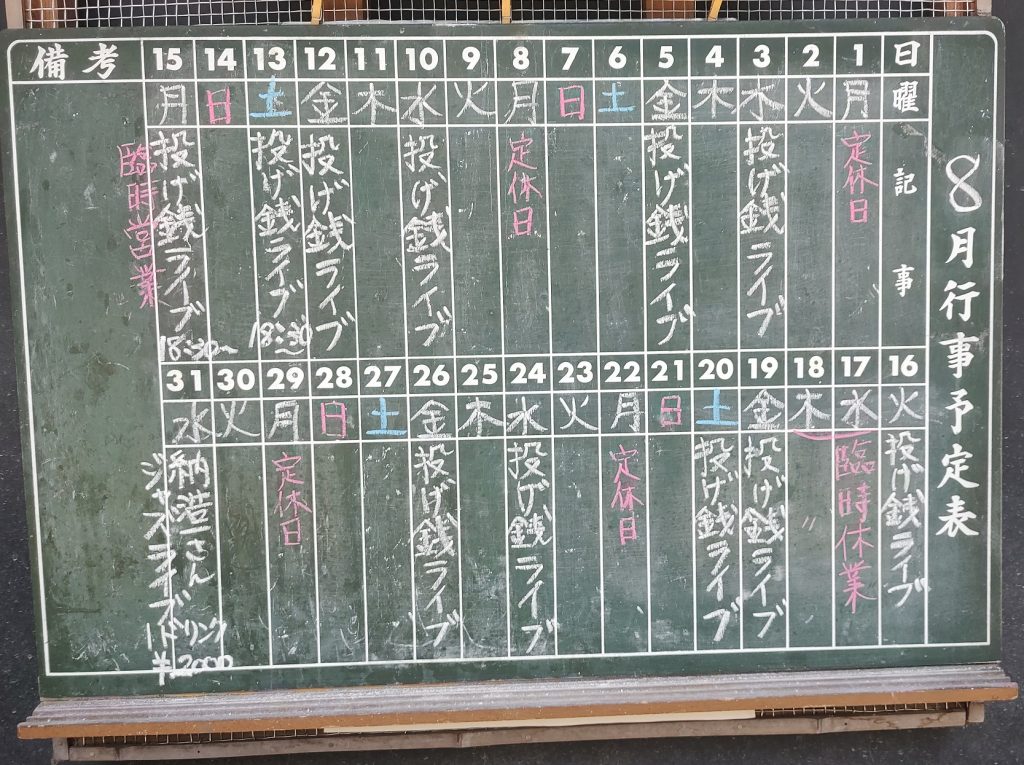 8月行事予定表
日
曜
記事
1
月
定休日
2
火
3
水
投げ銭ライブ
4
木
5
金
投げ銭ライブ
6
土
7
日
8
月
定休日
9
火
10
水
投げ銭ライブ
11
木
12
金
投げ銭ライブ
13
土
投げ銭ライブ
18:30〜
14
日
15
月
投げ銭ライブ
18:30〜
臨時営業
備考
16
火
投げ銭ライブ
17
水
臨時休業
18
木
〃
19
金
投げ銭ライブ
20
土
投げ銭ライブ
21
日
22
月
定休日
23
火
24
水
投げ銭ライブ
25
木
26
金
投げ銭ライブ
27
土
28
日
29
月
定休日
30
火
31
水
納浩一さん
ジャズライブ
1ドリンク
¥2000